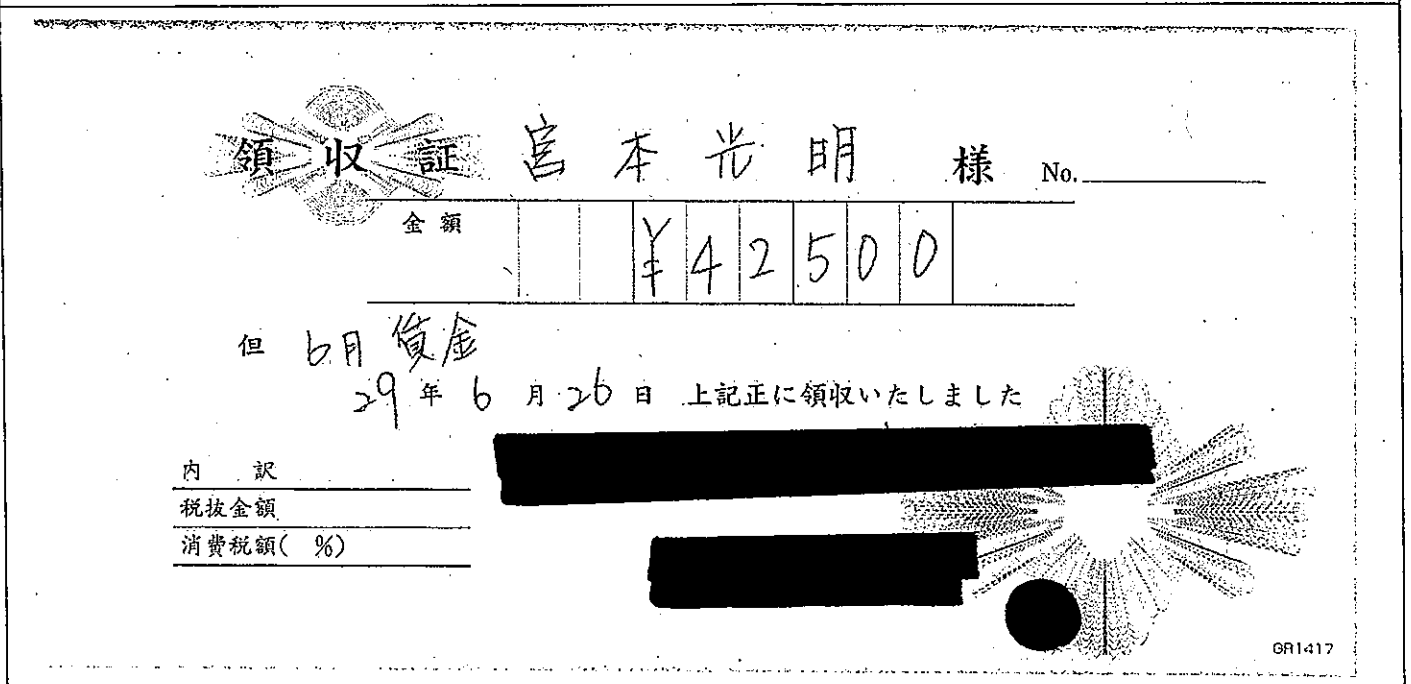 領収証 宮本光明 様 No.
金額 ¥42500
但 6月賃金
29年6月26日 上記正に領収いたしました
内訳
税抜金額
消費税額( %)
GR1417